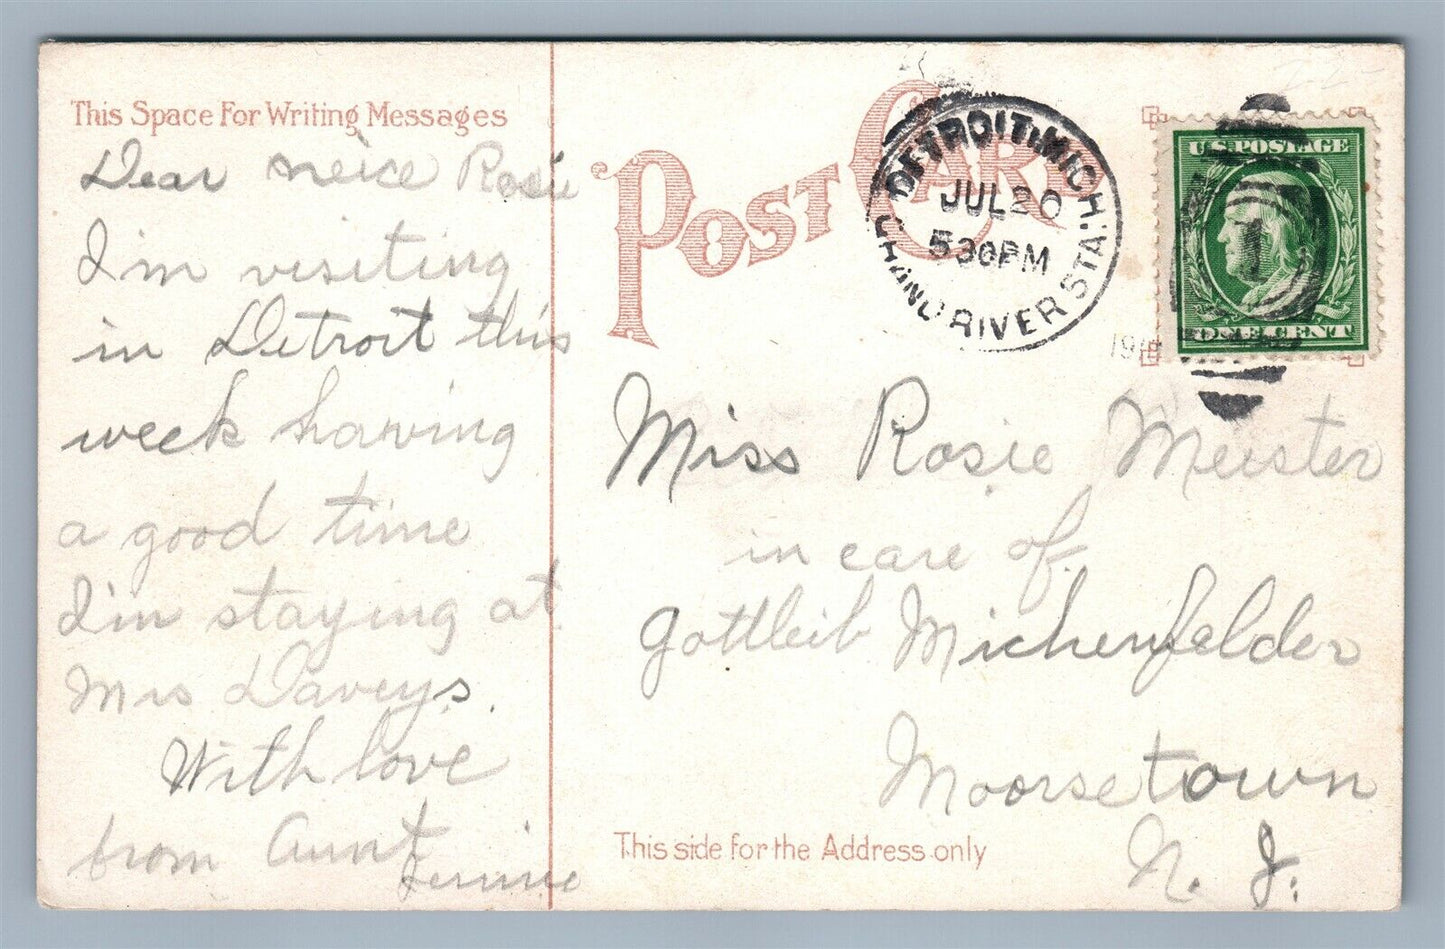 This Space For Writing Messages
Dear neice Rosie
I'm visiting
in Detroit this
week having
a good time
I'm staying at
Mrs Daveys.
With love
from Aunt
Jennie
POST CARD
DETROIT, MICH.
JUL 20
530PM
GRAND RIVER STA.
U.S. POSTAGE
1
ONE CENT
Miss Rosie Meister
in care of
Gottleib Michenfelder
Moorsetown
N. J.
This side for the Address only